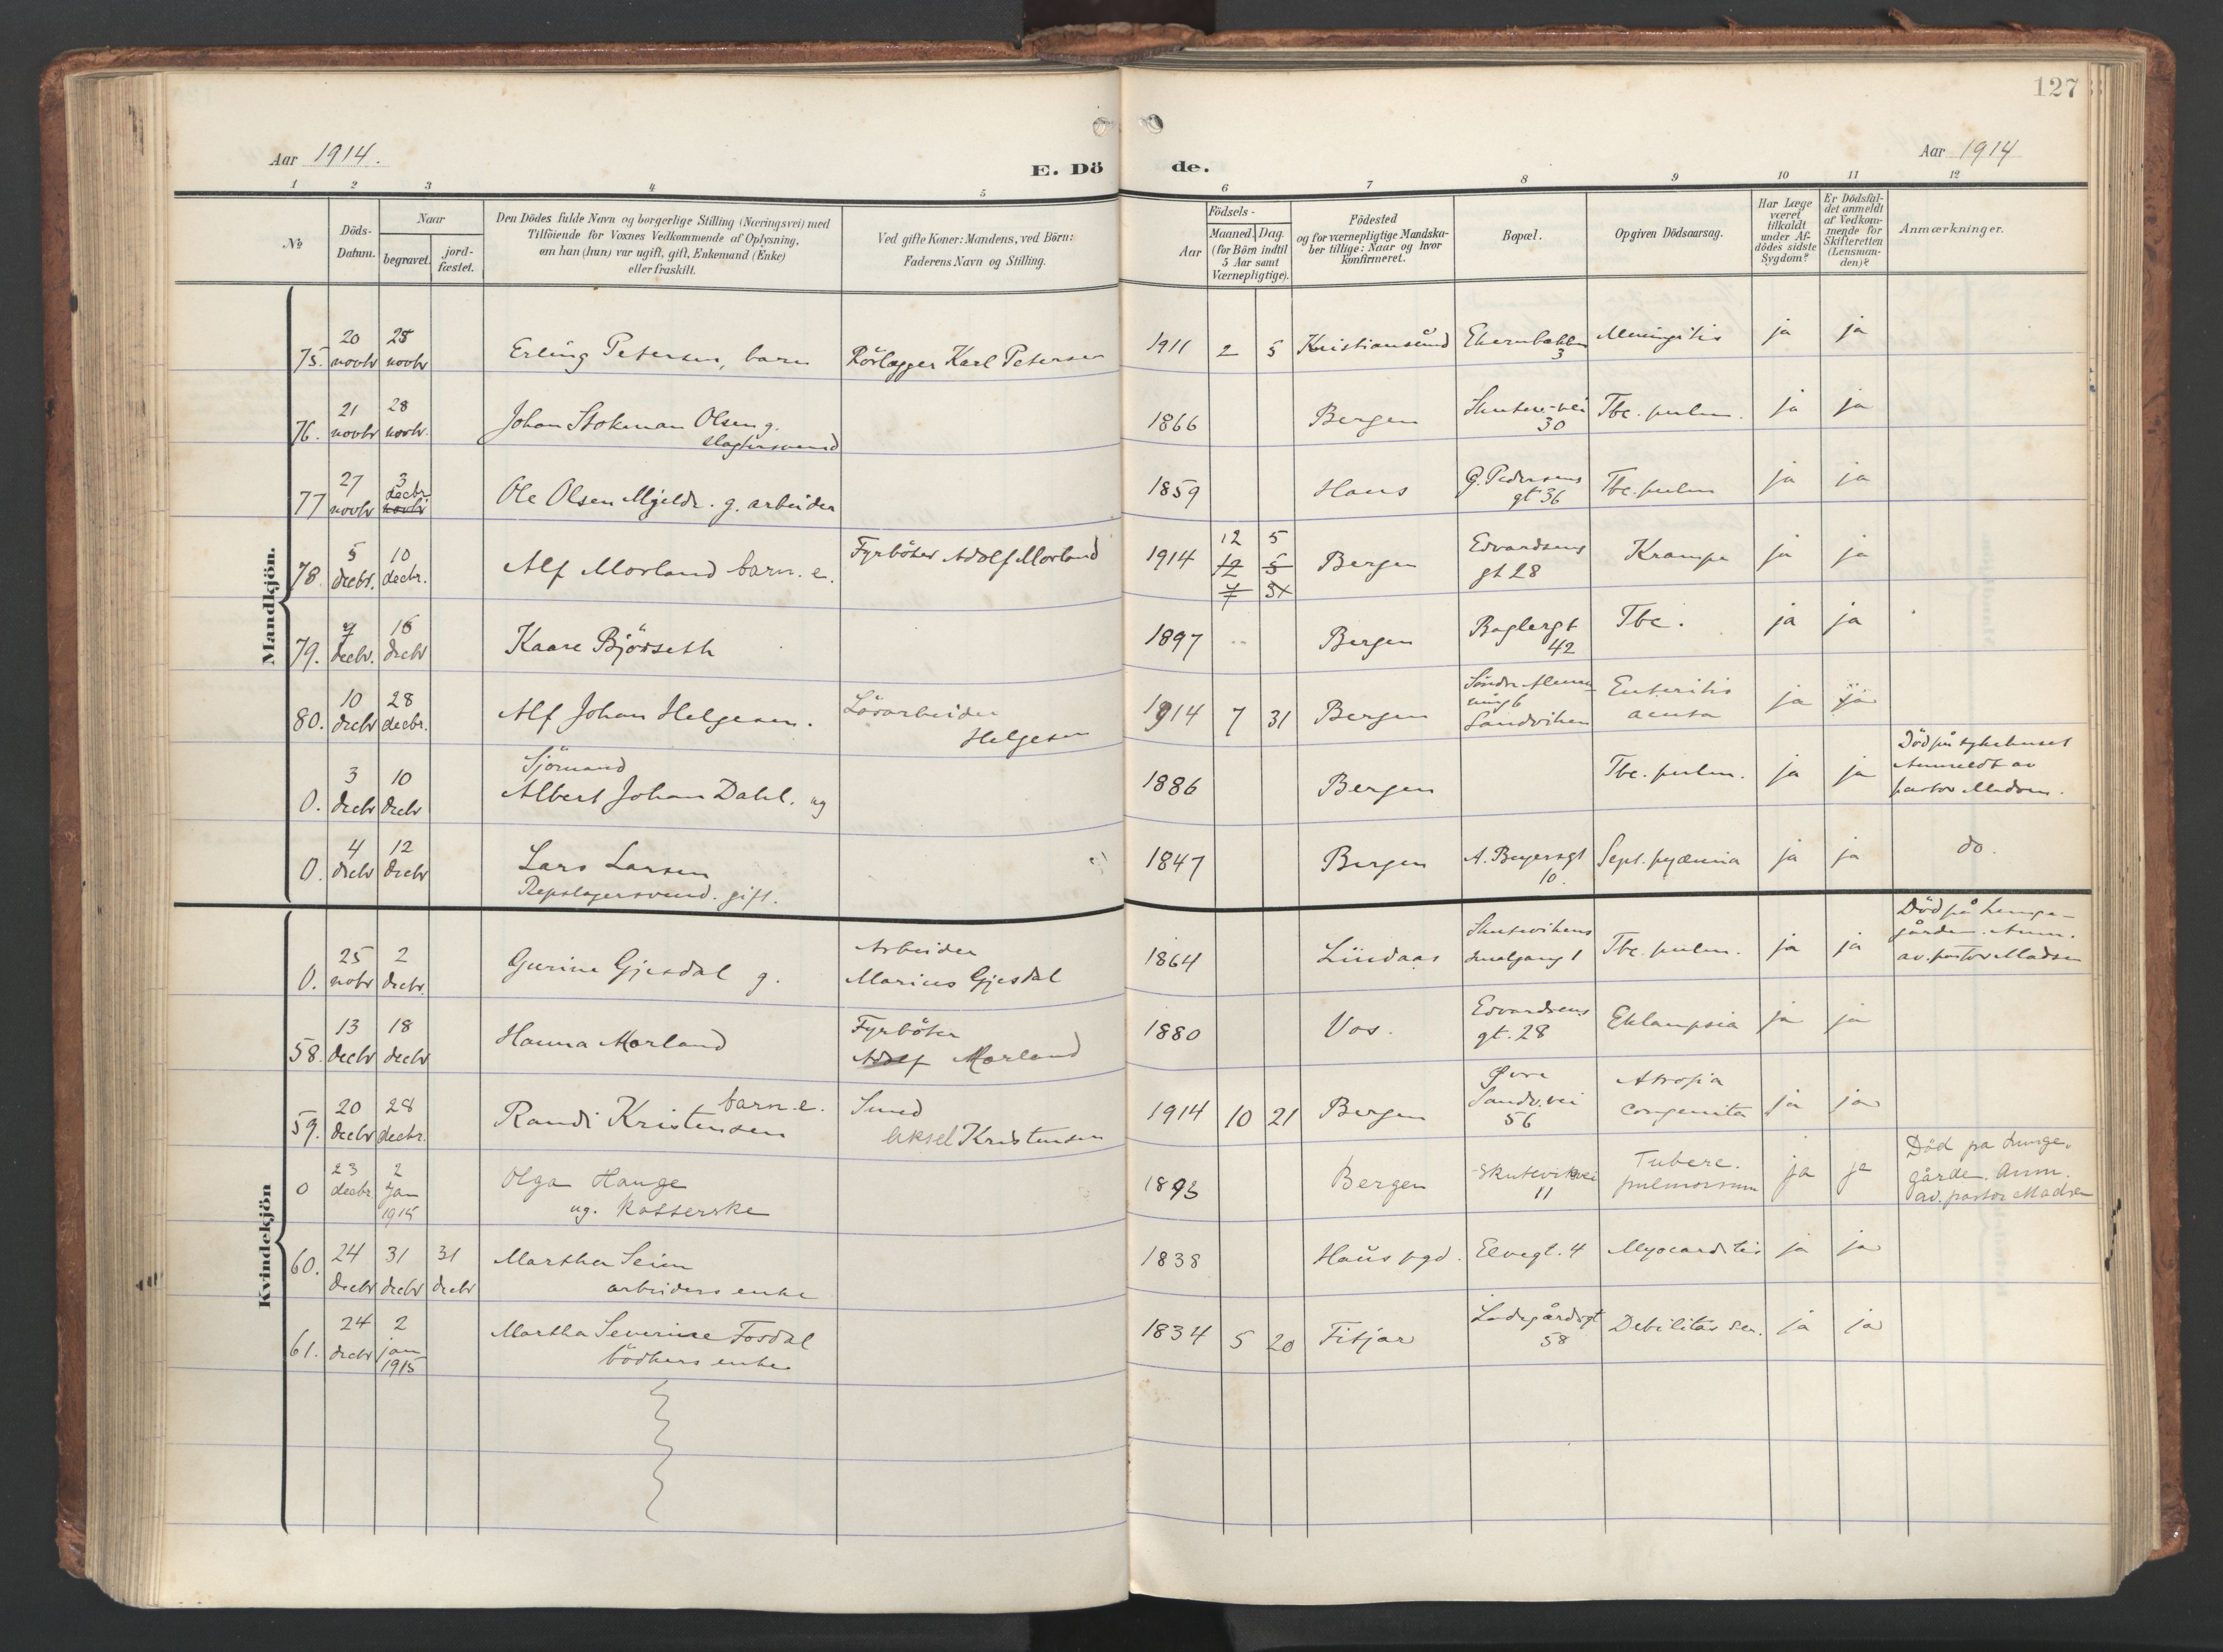 127
Aar 1914.
E. Dö
de.
Aar 1914
1 2 3 4 5 6 7 8 9 10 11 12
№
Döds-Datum.
Naar
begravet.
jord-fæstet.
Den Dödes fulde Navn og borgerlige Stilling (Næringsvei) med
Tilföiende for Voxnes Vedkommende af Oplysning,
om han (hun) var ugift, gift, Enkemand (Enke)
eller fraskilt.
Ved gifte Koner: Mandens, ved Börn:
Faderens Navn og Stilling.
Aar
Födsels-
Maaned. Dag.
(for Börn indtil
5 Aar samt
Værnepligtige).
Födested
og for værnepligtige Mandska-
ber tillige: Naar og hvor
konfirmeret.
Bopæl.
Opgiven Dödsaarsag.
Har Læge
været
tilkaldt
under Af-
dödes sidste
Sygdom?
Er Dödsfal-
det anmeldt
af Vedkom-
mende for
Skifteretten
(Lensman-
den)?
Anmærkninger.
Mandkjön.
75. 20 novbr 25 novbr Erling Petersen, barn Rörlægger Karl Petersen 1911 2 5 Kristiansund 3 Meningitis ja ja
76. 21 novbr 28 novbr. Johan Stokman Olsen g.
slagtersvend 1866 Bergen Skutev.vei 30 Tbc. pulm. ja ja
77 27 novbr 3 decbr novbr Ole Olsen Mjelde. g. arbeider 1859 Haus G. Pedersens gt 36 Tbc. pulm ja ja
78. 5 decbr. 10 decbr. Alf Morland barn. e. Fyrböter Adolf Morland 1914 12 5 12 5 7 31 Bergen Edvardsens gt 28 Krampe ja ja
79. 9 decbr. 15 decbr Kaare Björseth 1897 Bergen Baglergt 42 Tbc. ja ja
80. 10 decbr 28 decbr. Alf Johan Helgesen. Lösarbeider
Helgesen 1914 7 31 Bergen Söndre
Sandviken Enteritis
acuta ja ja
0. 3 decbr 10 decbr Sjömand
Albert Johan Dahl. ug 1886 Bergen Tbc. pulm. ja ja Död på sykehuset
Anmeldt av
pastor Madsen.
0. 4 decbr 12 decbr Lars Larsen
Repslagersvend. gift. 1847 Bergen A. Beyersgt 10. Sept. pyæmia ja ja do.
Kvindekjön
0. 25 nobr 2 decbr. Gurine Gjesdal g. Arbeider
Marius Gjesdal 1864 Lindaas Skutevikens
Smalgang 1 Tbc. pulm. ja ja Död på Lunge-
gården. Anm.
av. pastor Madsen
58. 13 decbr 18 decbr Hanna Morland Fyrböter
Adolf Morland 1880 Vos. Edvardsens gt. 28 Eklampsia ja ja
59. 20 decbr 28 decbr. Randi Kristensen barn. e. Smed
Aksel Kristensen 1914 10 21 Bergen Øvre
Sandv.vei
56 Atrofia
congenita ja ja
0 23 decbr. 2 Jan 1915 Olga Hauge
ug. kasserske 1893 Bergen Skuteviksvei
11 Tuberc.
pulmonum ja ja Död på Lunge-
gården. Anm.
av. pastor Madsen
60. 24 decbr 31 decbr 31 decbr Martha Seim
arbeiders enke 1838 Haus pgd. Elvegt. 4 Myocarditis ja ja
61. 24 decbr 2 jan 1915 Martha Severine Fosdal
bödkers enke 1834 5 20 Fitjar Ladegårdsgt
58 Debilitas sen. ja ja